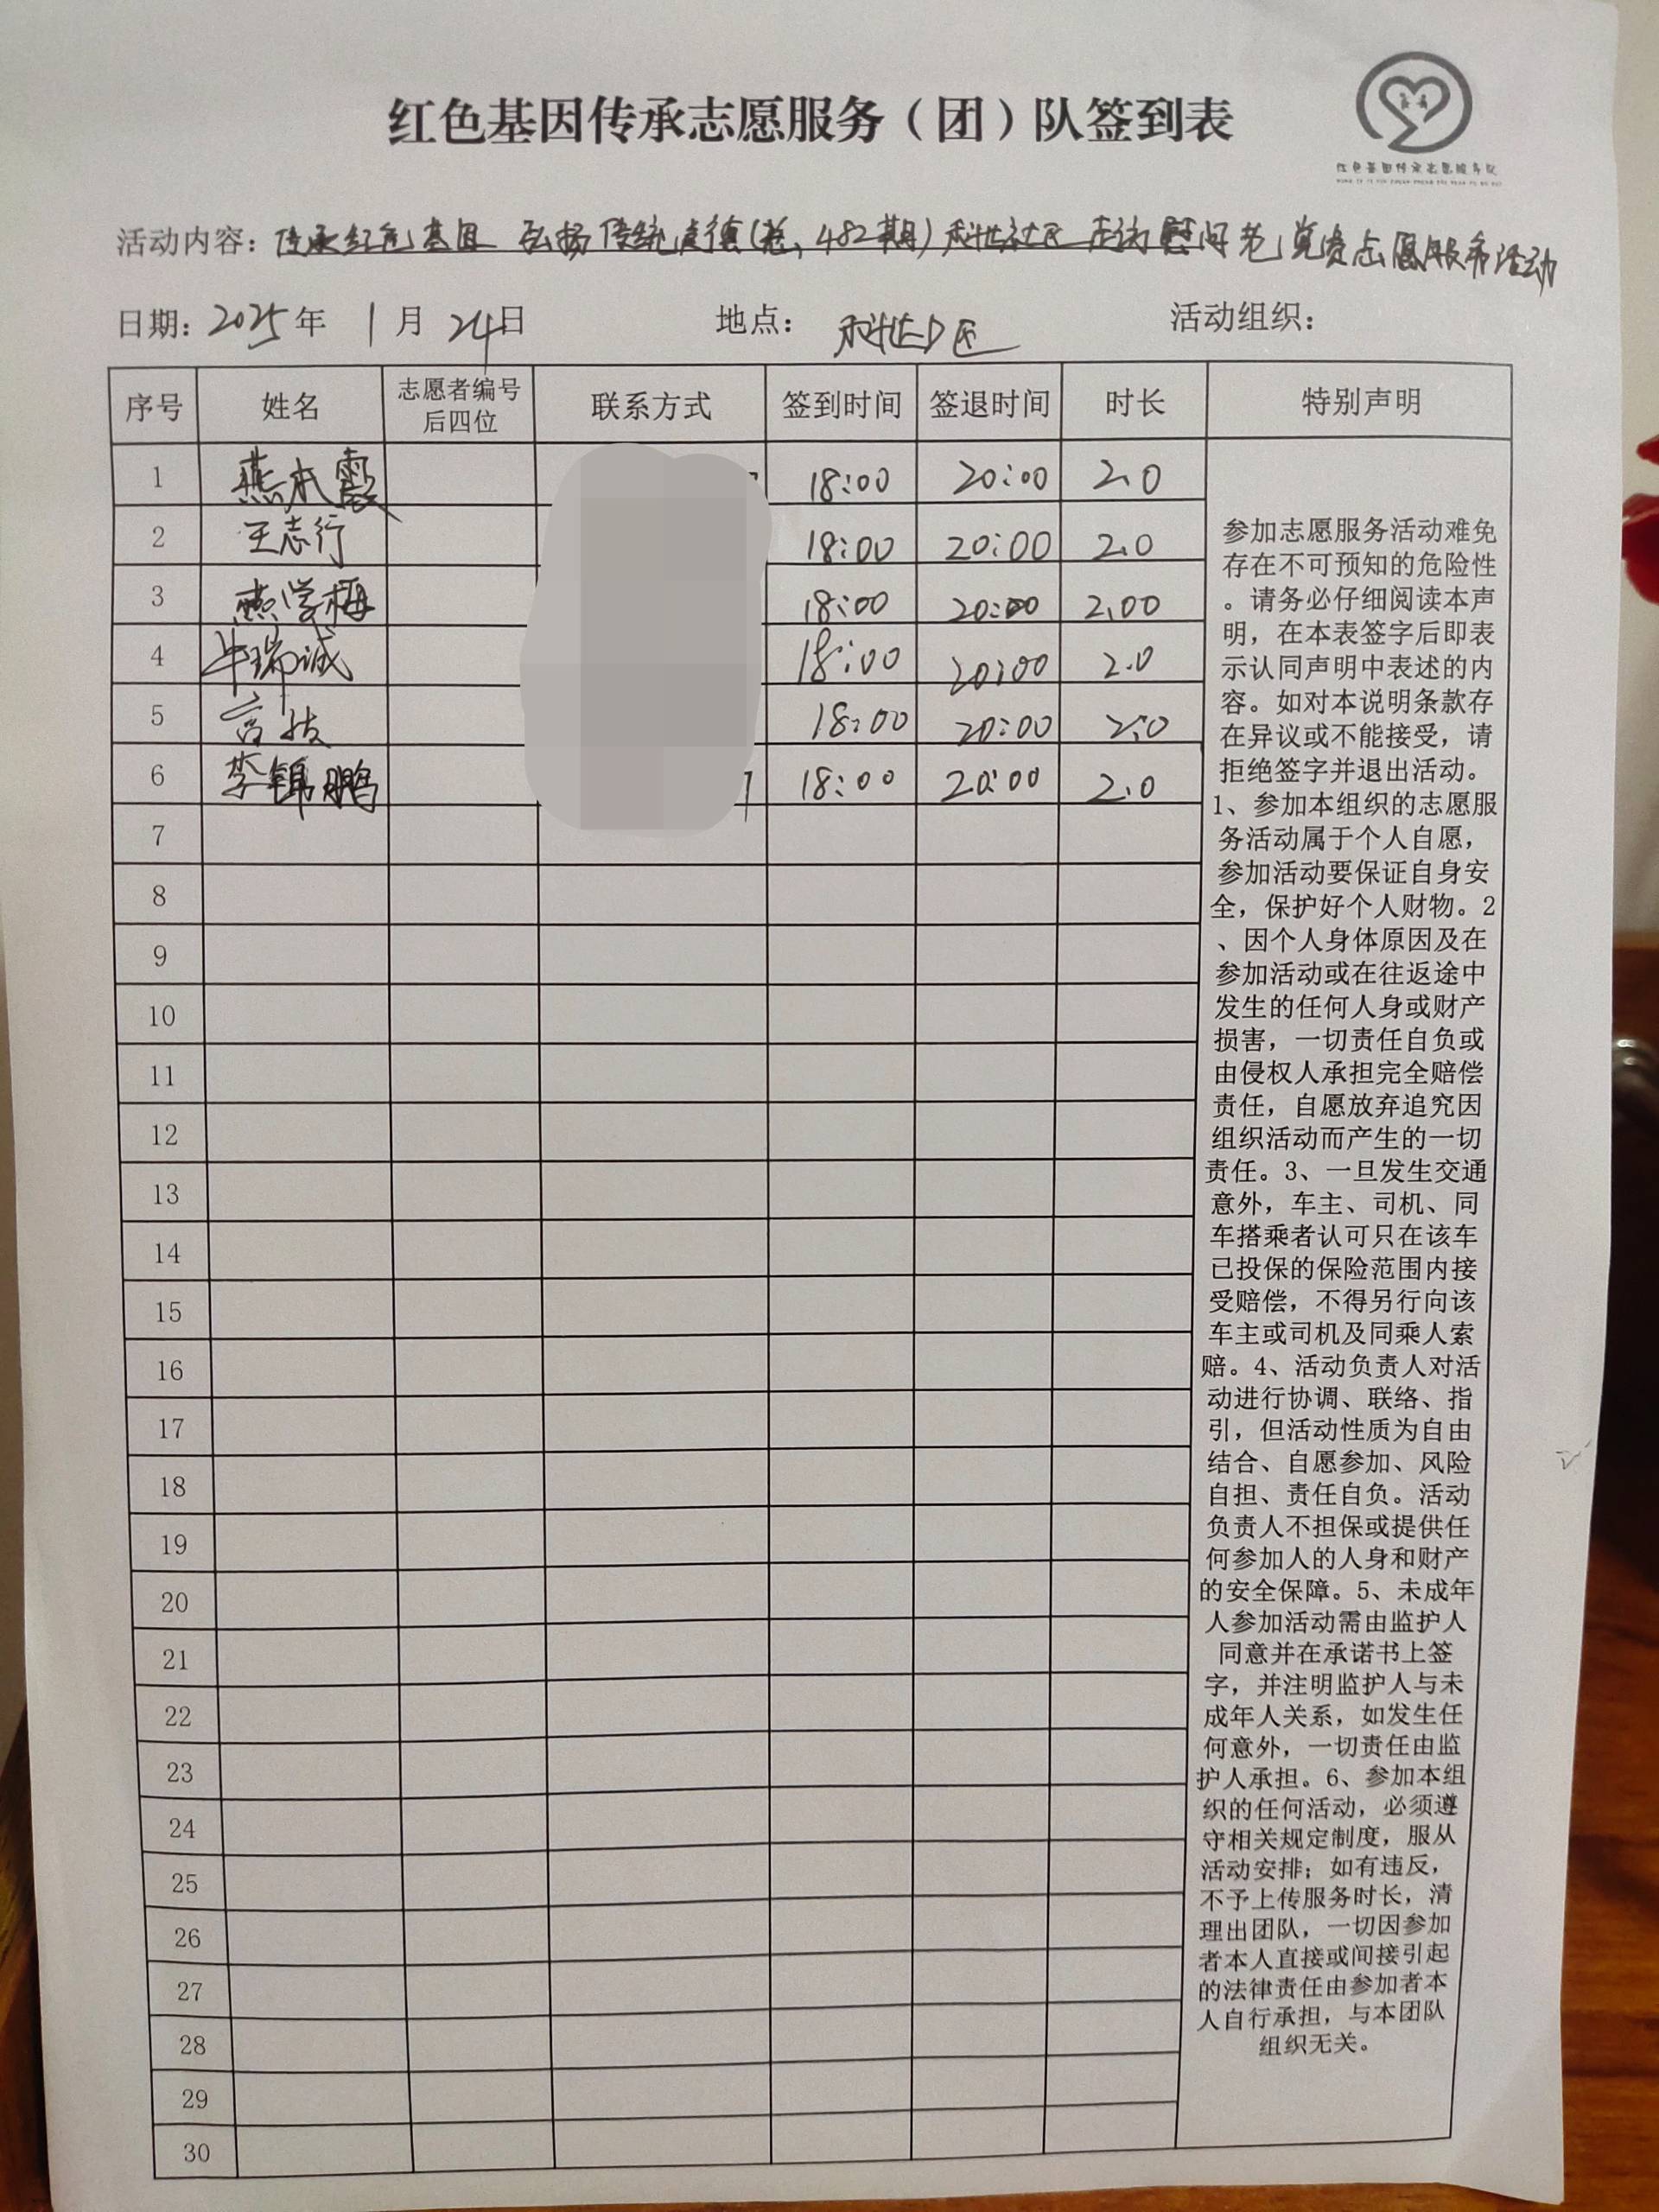 红色基因传承志愿服务（团）队签到表
红色基因传承志愿服务队
活动内容：传承红色基因 弘扬传统美德(总,482期)科苑社区走访慰问老党员志愿服务活动
日期：2025年 1月 24日 地点： 社区 活动组织：
序号 姓名 志愿者编号后四位 联系方式 签到时间 签退时间 时长 特别声明
1 燕本霞 18:00 20:00 2.0
2 王志行 18:00 20:00 2.0
3 燕学梅 18:00 20:00 2.00
4 牛瑞诚 18:00 20:00 2.0
5 18:00 20:00 2.0
6 李锦鹏 18:00 20:00 2.0
7
8
9
10
11
12
13
14
15
16
17
18
19
20
21
22
23
24
25
26
27
28
29
30
参加志愿服务活动难免
存在不可预知的危险性
。请务必仔细阅读本声
明，在本表签字后即表
示认同声明中表述的内
容。如对本说明条款存
在异议或不能接受，请
拒绝签字并退出活动。
1、参加本组织的志愿服
务活动属于个人自愿，
参加活动要保证自身安
全，保护好个人财物。2
、因个人身体原因及在
参加活动或在往返途中
发生的任何人身或财产
损害，一切责任自负或
由侵权人承担完全赔偿
责任，自愿放弃追究因
组织活动而产生的一切
责任。3、一旦发生交通
意外，车主、司机、同
车搭乘者认可只在该车
已投保的保险范围内接
受赔偿，不得另行向该
车主或司机及同乘人索
赔。4、活动负责人对活
动进行协调、联络、指
引，但活动性质为自由
结合、自愿参加、风险
自担、责任自负。活动
负责人不担保或提供任
何参加人的人身和财产
的安全保障。5、未成年
人参加活动需由监护人
同意并在承诺书上签
字，并注明监护人与未
成年人关系，如发生任
何意外，一切责任由监
护人承担。6、参加本组
织的任何活动，必须遵
守相关规定制度，服从
活动安排；如有违反，
不予上传服务时长，清
理出团队，一切因参加
者本人直接或间接引起
的法律责任由参加者本
人自行承担，与本团队
组织无关。